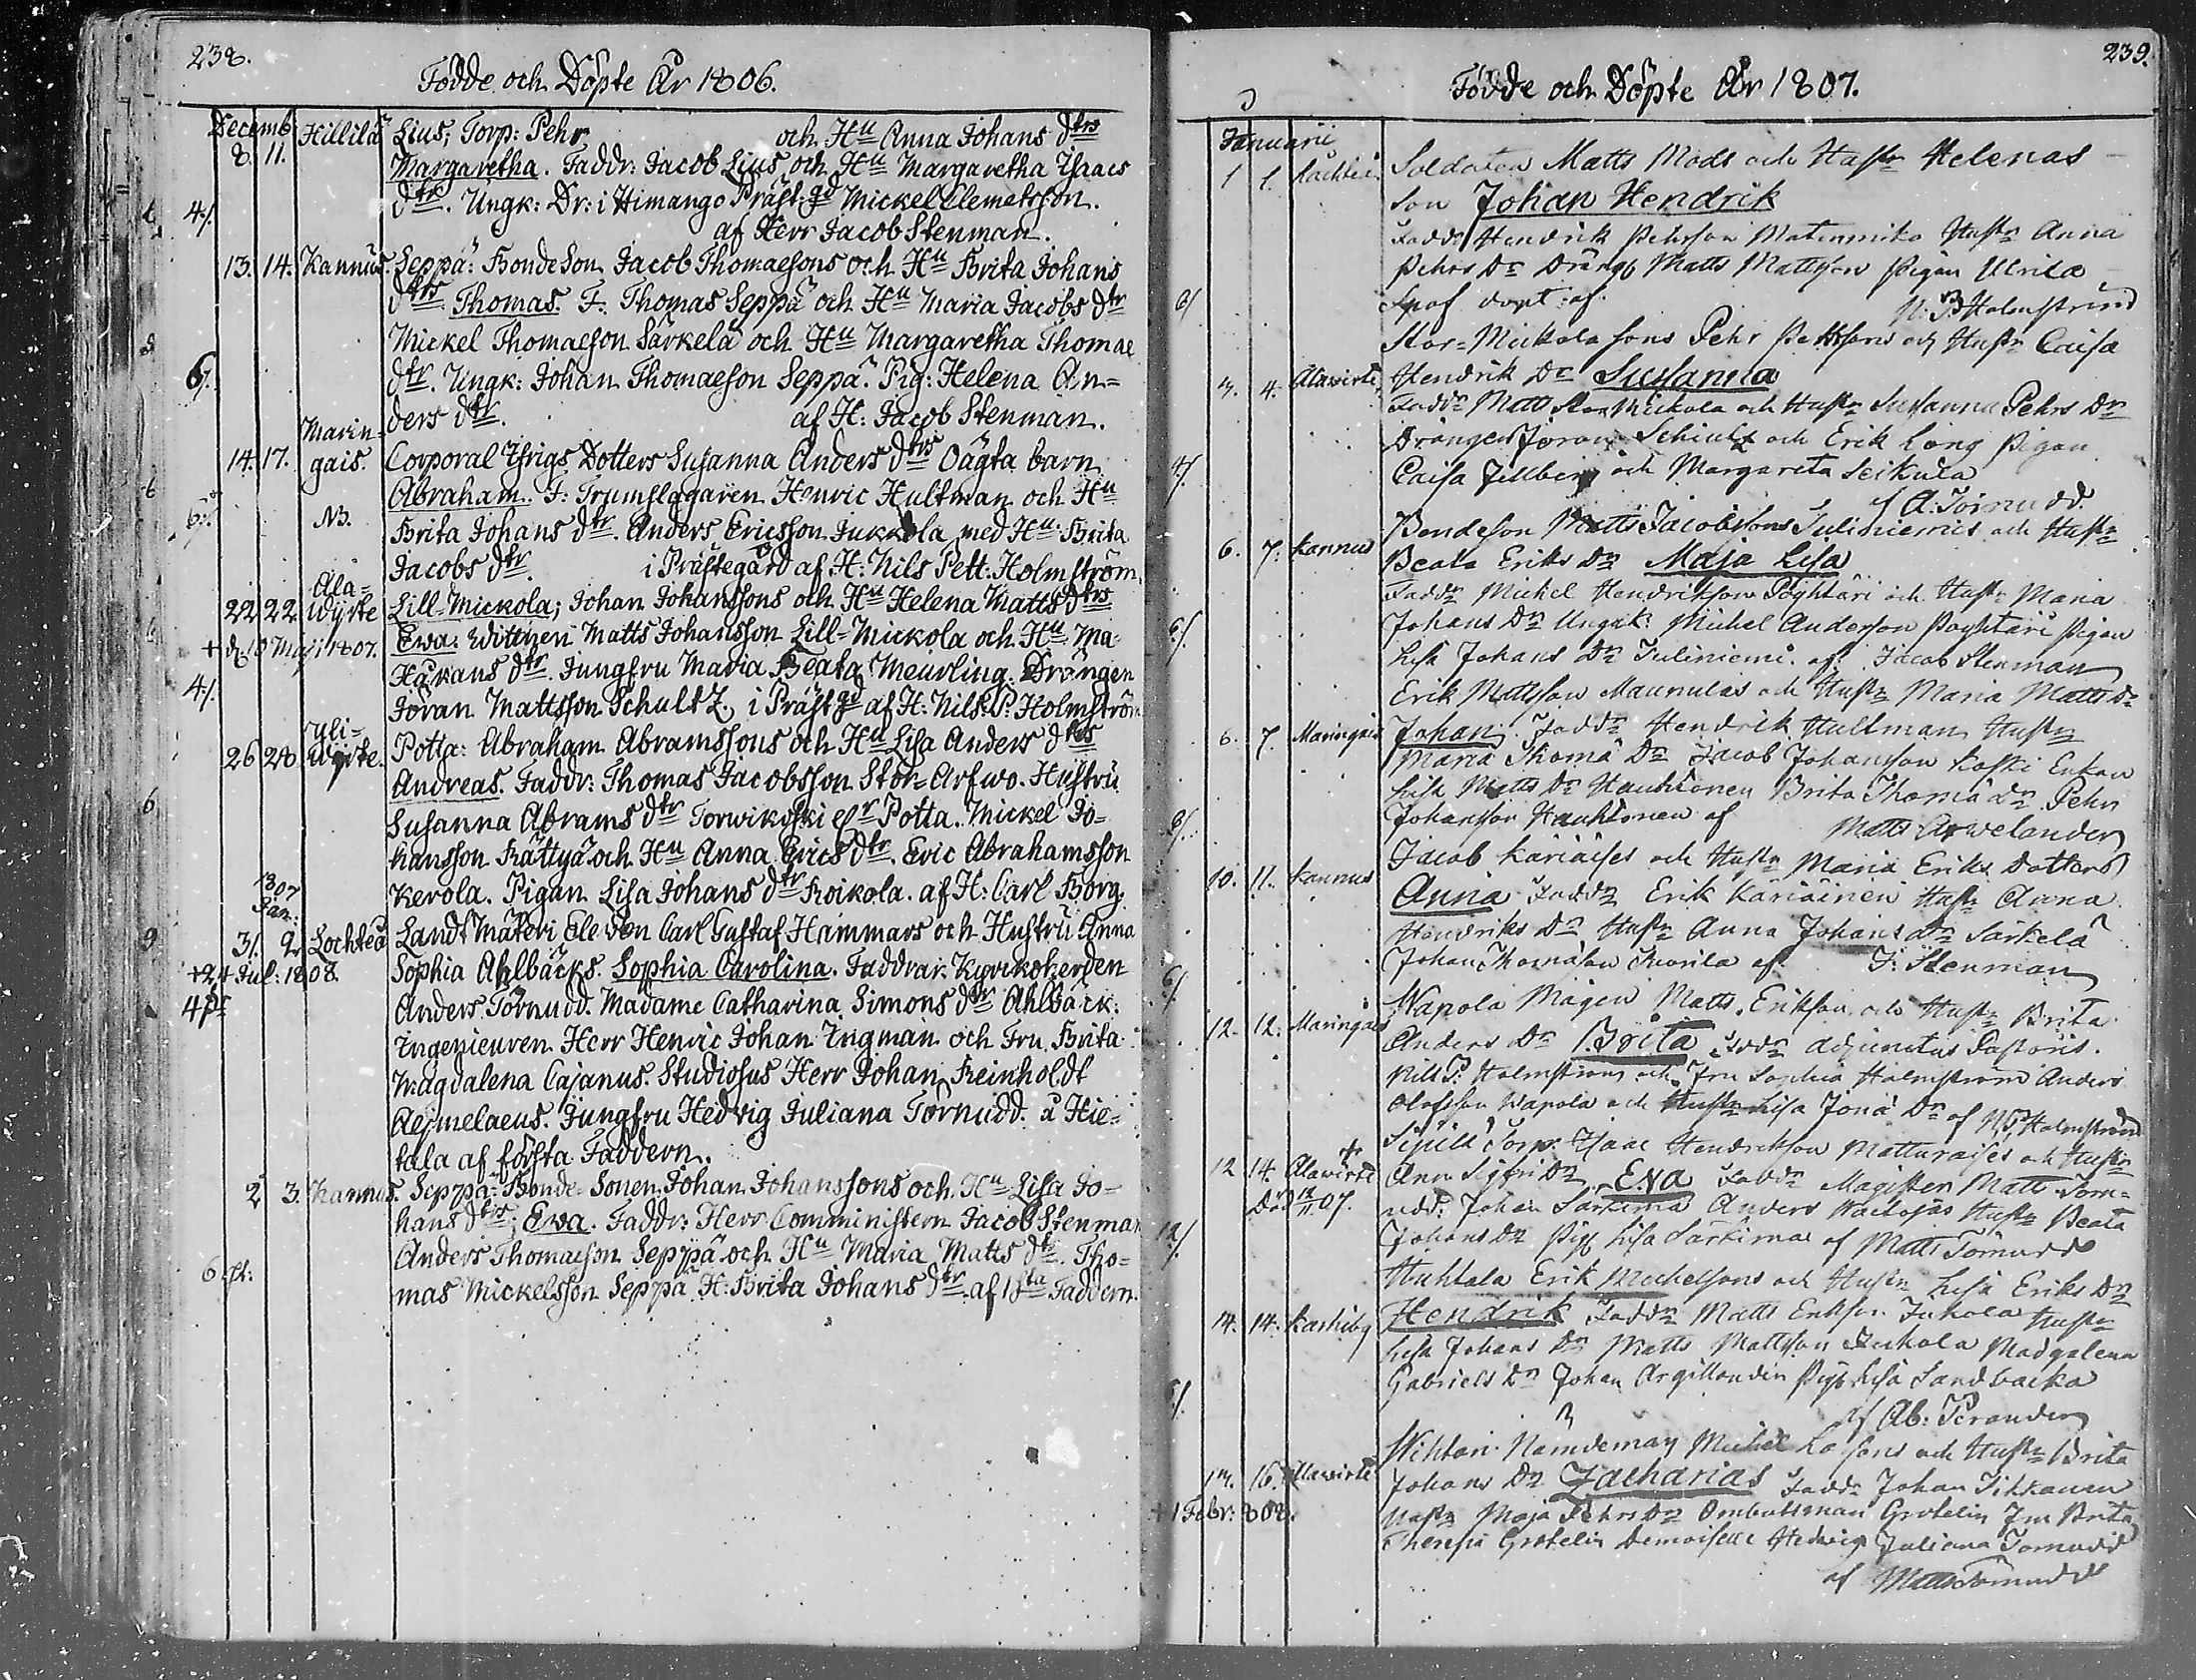 238.
Födde och Döpte År 1806.
Decemb
8. 11. Hillilä Lius; Torp: Pehr och Hu Anna Johans dtrs
Margaretha. Faddr: Jacob Lius och Hu Margaretha Isaacs
dtr. Ungk: Dr: i Himango Präst-gd Mickel Clemetsson.
4/. af Herr Jacob Stenman.
13. 14. Kannus. Seppä: BondeSon Jacob Thomaesons och Hu Brita Johans
dtrs Thomas. F. Thomas Seppä och Hu Maria Jacobs dtr
Mickel Thomaeson Särkelä och Hu Margaretha Thomae
6/. dtr. Ungk: Johan Thomaeson Seppä. Pig: Helena An=
ders dtr. af H: Jacob Stenman.
Marin=
14. 17. gais. Corporal Yrigs Dotters Susanna Anders dtrs Oägta barn
Abraham. F: Trumslagaren Henric Hultman och Hu
6/. NB. Brita Johans dtr. Anders Ericsson Jukkola med Hu Brita
Jacobs dtr. i Prästegård af H: Nils Pett: Holmström.
Ala=
22 22 wyrte Lill-Mickola; Johan Johanssons och Hu Helena Matts dtrs
+ d. 10 Maji 1807. Ewa: Wittnen Matts Johansson Lill=Mickola och Hu Ma-
Håkans dtr. Jungfru Maria Beata Meurling. Drängen
4/. Jöran Mattsson Schultz, i Präst gd af H: Nils P: Holmström
Yli=
26 28 wyrte. Potta: Abraham Abramssons och Hu Lisa Anders dtrs
Andreas. Faddr: Thomas Jacobsson Stor-Arfwo. Hustru
Susanna Abrams dtr Torwikoski elr Potta. Mickel Jo=
hansson Rättyä och Hu Anna Erics dtr. Eric Abrahamsson
Kerola. Pigan Lisa Johans dtr Roikola. af H: Carl Borg.
1807
Jan:
31. 2. Lochteå Landt Mäteri Eleven Carl Gustaf Hammars och Hustru Anna
+24 Jul: 1808. Sophia Ahlbäcks. Sophia Carolina. Faddrar: Kyrkoherden
4 pr Anders Törnudd. Madame Catharina Simons dtr Ahlbäck:
Ingenieuren Herr Henric Johan Ingman och Fru Brita
Magdalena Cajanus. Studiosus Herr Johan Reinholdt
Aejmelaeus. Jungfru Hedvig Juliana Törnudd. å Hie-
tala af första Faddern.
2 3. Kannus. Seppä: Bonde-Sonen Johan Johanssons och Hu Lisa Jo-
hans dtrs; Ewa. Faddr: Herr Comministern Jacob Stenman
Anders Thomaeson Seppä och Hu Maria Matts dtr. Tho-
mas Mickelsson Seppä H: Brita Johans dtr. af 1sta Faddern.
239.
Födde och Döpte År 1807.
Januarii
1 1. Soldaten Matts Mods och Hustr Helenas
Son Johan Hendrik
Faddr Hendrik Pehrsson Hustr Anna
Pehrs Dr Dräng Matts Mattsson Pigan Ulrica
döpt af N: P Holmström
Stor-Mickola Sons Pehr och Hustr Caisa
3. 4. Alawirte Hendrik Dr Susanna
Faddr Matts Stor Mickola och Hustr Susanna Pehrs Dr
Drängen Jöran Schultz och Erik Long Pigan
Caisa och Margareta Seikula
af A: Törnudd.
6. 7. Kannus Bondeson Matts Jacobssons Juliniemis och Hustr
Beata Eriks Dr Maja Lisa
Faddr Michel Hendriksson Pöyhtäri och Hustr Maria
Johans Dr Ungk: Michel Andersson Pöyhtäri Pigan
Lisa Johans Dr Juliniemi. af: Jacob Stenman
Erik Mattsson Maunulas och Hustr Maria Matts Dr
6. 7. Maringais Johan. Faddr Hendrik Hultman Hustr
Maria Thoma Dr Jacob Johansson Koski Enkan
Lisa Matts Dr Hauhtonen Brita Thoma Dr Pehr
Johansson Hauhtonen af Matts Arwelander
10. 11. Kannus Jacob Kariäises och Hustr Maria Eriks Dotters
Anna Faddr Erik Kariäinen Hustr Anna
Hendriks Dr Hustr Anna Johans Dr Särkelä
Johan Thomasson af J: Stenman
12. 12. Maringais Wapola Mågen Matts Eriksson och Hustr Brita
Anders Dr Brita Faddr Adjunctus Pastoris.
Nils P: Holmström och Fru Sophia Holmström Anders
Olofsson Wapola och Hustr Lisa Jona Dr af N: P Holmström
12 14. Alawirte Torp: Isaac Hendriksson och Hustr
Ann Sigfri Dr Eva Faddr Magister Matts Törn=
udd. Johan Särkimä Anders Hustr Beata
Johans Dr Pig Lisa Särkimä af Matts Törnudd
Huhtala Erik Michelsons och Hustr Lisa Eriks Dr
14. 14. Hendrik Faddr Matts Eriksson Jukola Hustr
Lisa Johans Dr Matts Mattsson Jukola Madgalena
Gabriels Dr Johan Argillander Pig Lisa Sandbacka
af Ab: Perander
Wihtari Nämdeman Michel och Hustr Brita
16. Alawirte Johans Dr Zacharias Faddr Johan Tikkanen
+ 1 Febr: 808. Hustr Maja Pehrs Dr Ombudsman Grotelin Fru Brita
Theresia Grotelin Demoiselle Hedwig Juliana Törnudd
af Matts Törnudd